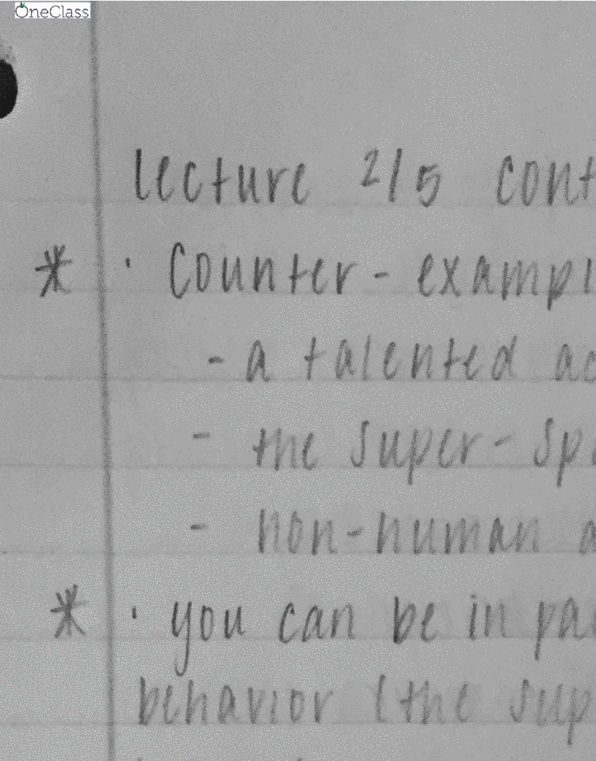 OneClass
lecture 2/5 cont
* · Counter - exampl
- a talented ac
- the super - sp
- non-human a
* · you can be in pa
behavior (the sup